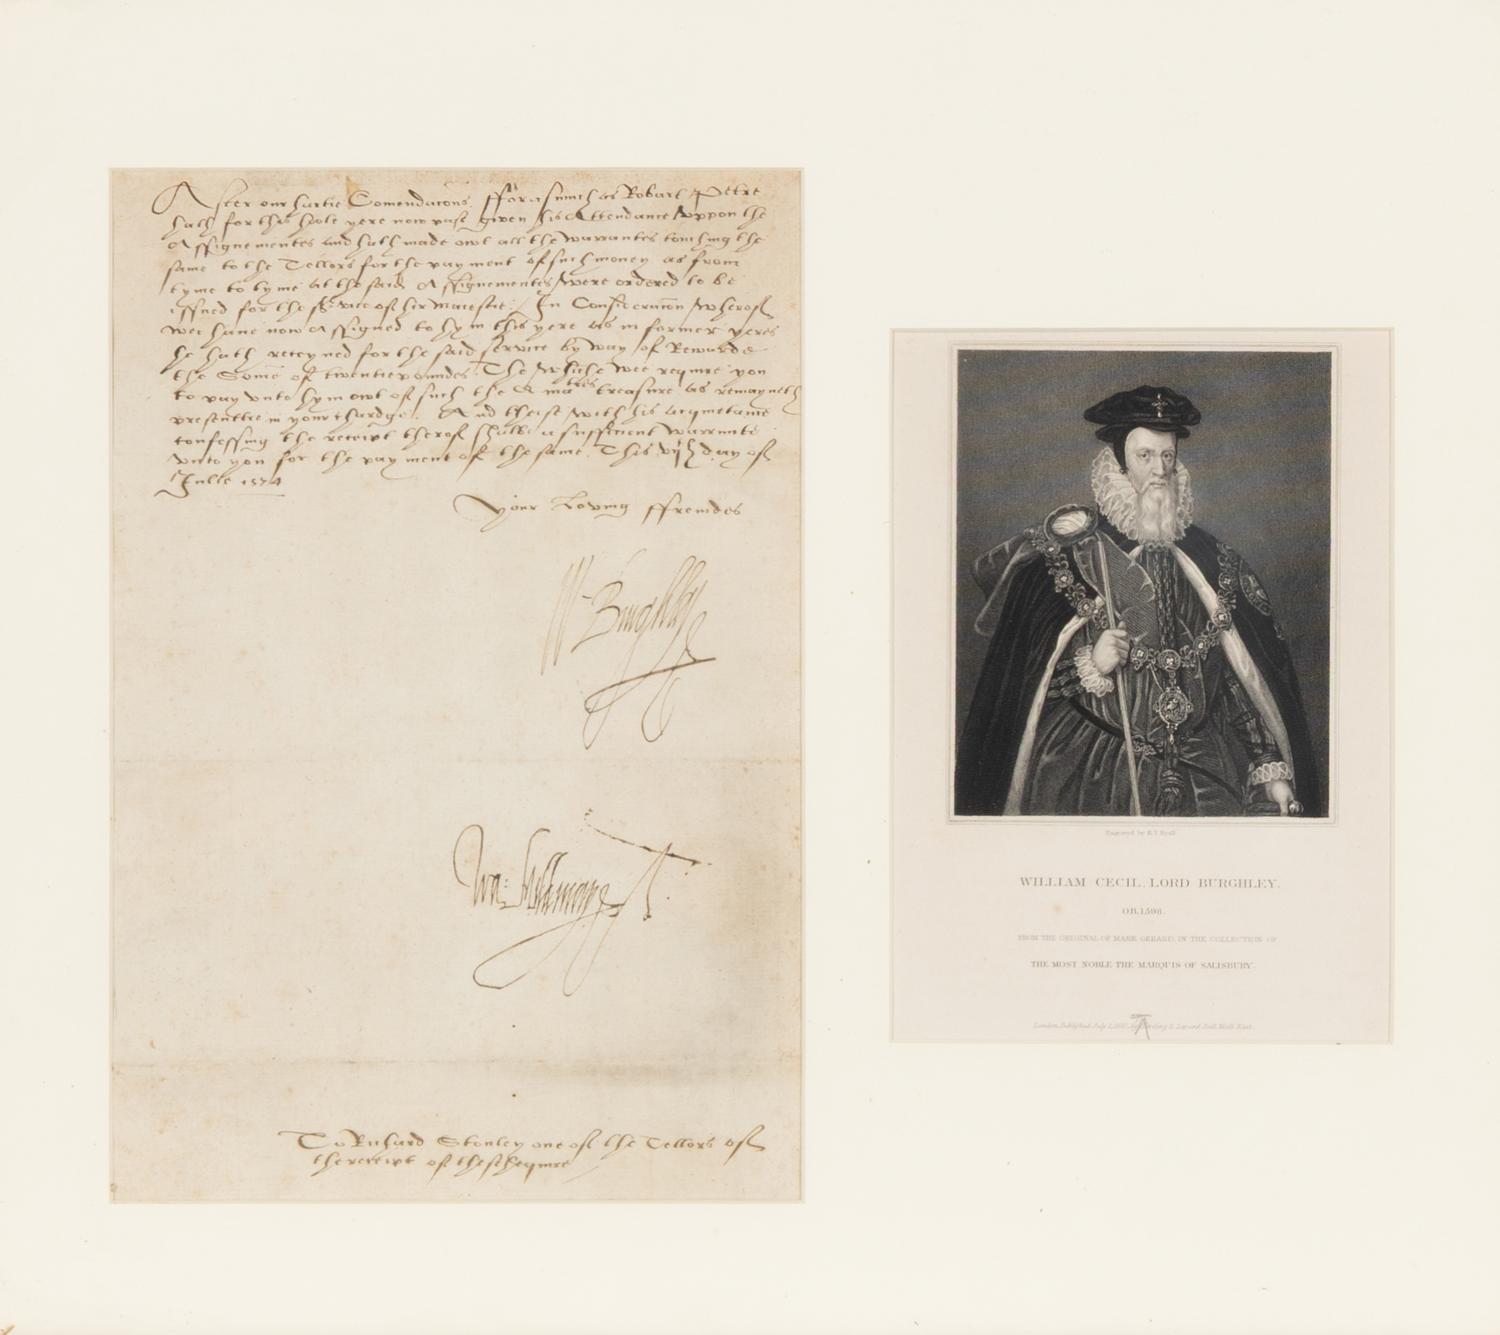 After our hartie Comendacons. fforasmuch as Robart Petre
hath for the hole yere now past given his Attendance uppon the
Assignementes and hath made owt all the warrantes touching the
same to the Tellors for the payment of such money as from
tyme to tyme at the said Assignementes were ordered to be
issued for the service of her Maiestie. In Consideracion wherof
wee have now Assigned to hym this yere as in former yeres
he hath receyved for the said service by way of Rewarde
the Some of twentie poundes. The whiche wee require you
to pay unto hym owt of such the Q maties treasure as remayneth
presentlie in your chardge. And theis with his acquietance
confessing the receipt therof shalbe a sufficient warrante
unto you for the payment of the same. This vijth day of
Julie 1574
Your Loving ffreindes
W Burghley
Wa: Mildmay
To Richard Stonley one of the Tellors of
the receipt of theschequire
Engraved by H.T. Ryall
WILLIAM CECIL, LORD BURGHLEY.
OB. 1598.
FROM THE ORIGINAL OF MARK GERARD, IN THE COLLECTION OF
THE MOST NOBLE THE MARQUIS OF SALISBURY.
London, Published July 1, by Harding & Lepard, Pall Mall East.